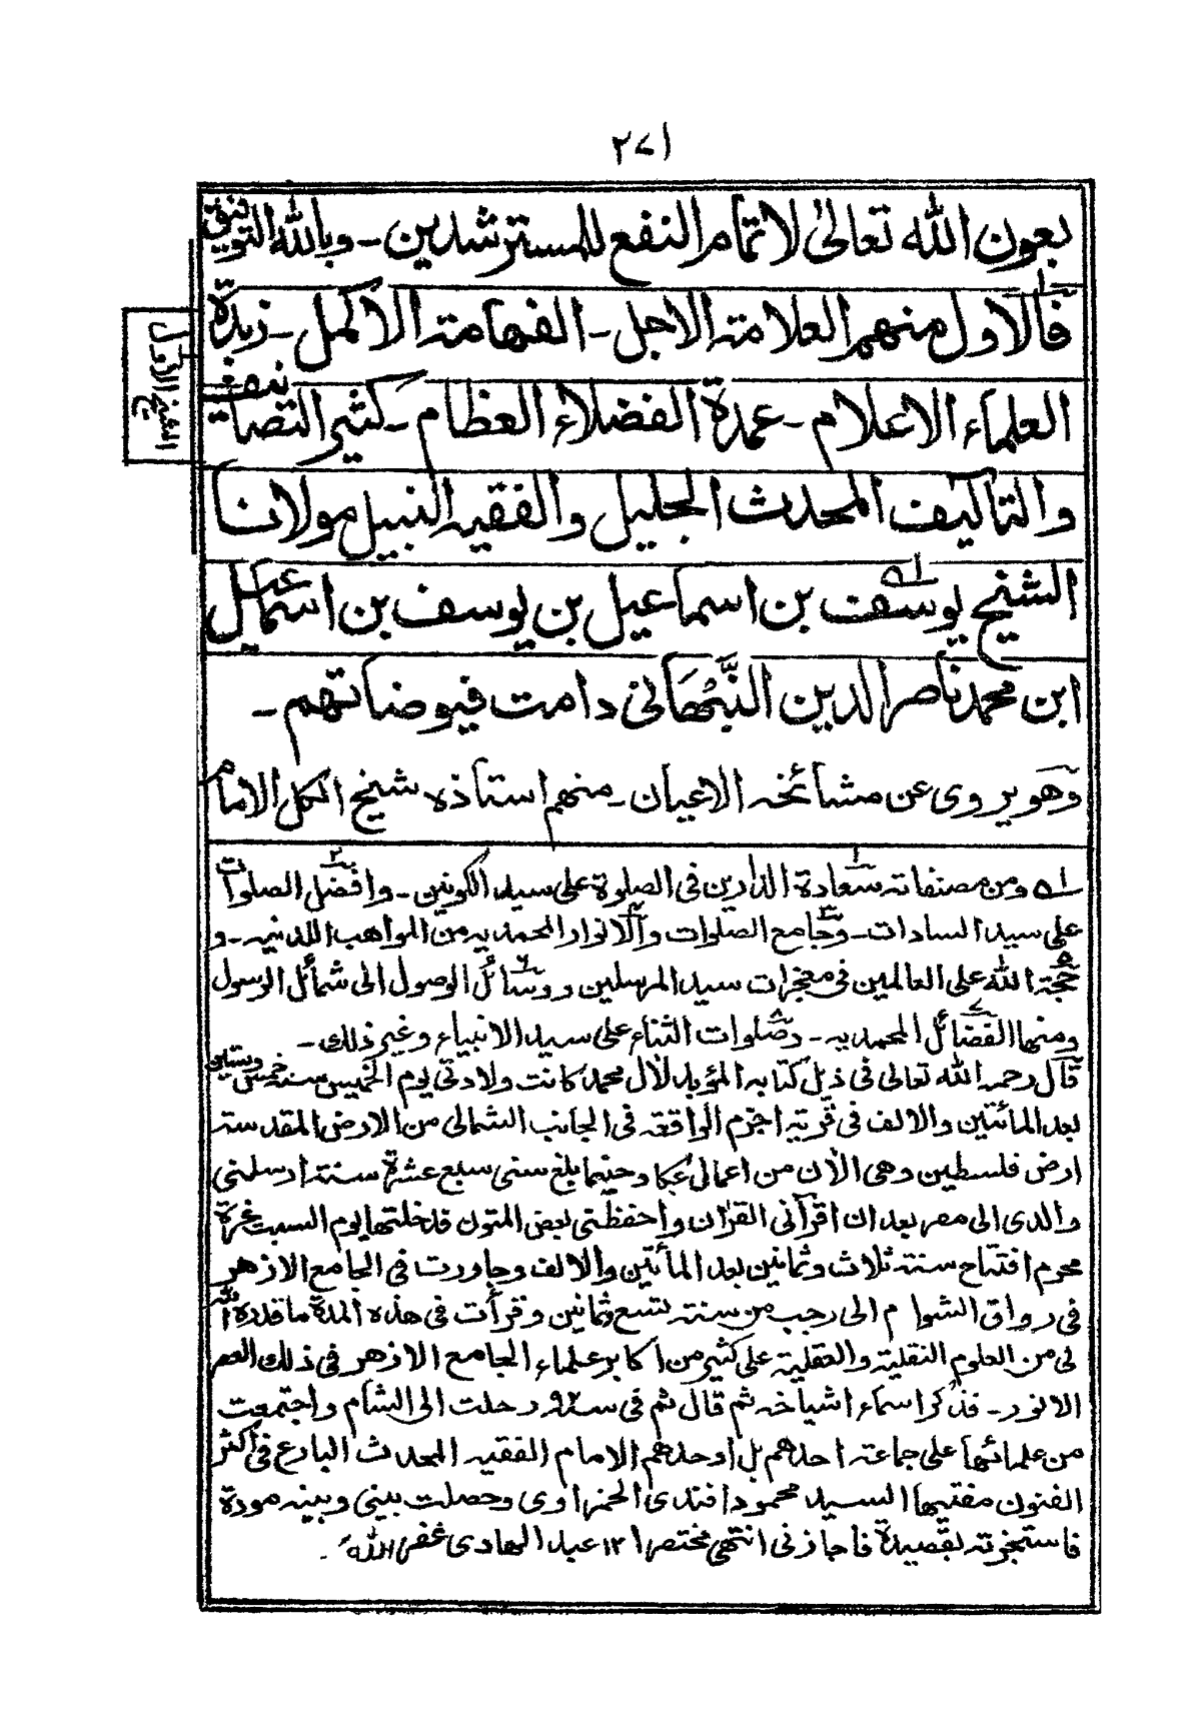 ٢٧١
بعون الله تعالىٰ لاتمام النفع للمسترشدين ـ وبالله التوفيق
فالاول منهم العلامة الاجل ـ الفهامة الاكمل ـ زبدة
العلماء الاعلام ـ عمدة الفضلاء العظام ـ كثير التصانيف
الشيخ الاول
والتاليف المحدث الجليل والفقيه النبيل مولانا
الشيخ يوسف بن اسماعيل بن يوسف بن اسماعيل
ابن محمد ناصر الدين النَّبْهَاني دامت فيوضاتهم ـ
وهو يروى عن مشائخه الاعيان ـ منهم استاذه شيخ الكل الامام
ا ه ومن مصنفاته سعادة الدارين فى الصلوة على سيد الكونين ـ وافضل الصلوات
على سيد السادات ـ وجامع الصلوات والانوار المحمديه من المواهب اللدنيه ـ و
حجة الله على العالمين فى معجزات سيد المرسلين ووسائل الوصول الى شمائل الرسول
ومنها الفضائل المحمديه ـ وصلوات الثناء على سيد الانبياء وغير ذلك ـ
قال رحمه الله تعالى فى ذيل كتابه المؤبد لآل محمد كانت ولادتى يوم الخميس سنة خمس وستين
بعد المأتين والالف فى قرية اجزم الواقعة فى الجانب الشمالى من الارض المقدسة
ارض فلسطين وهى الآن من اعمال عكا وحينما بلغ سنى سبع عشرة سنة ارسلنى
والدى الى مصر بعد ان اقرآنى القرآن واحفظنى بعض المتون فدخلتها يوم السبت غرة
محرم افتتاح سنة ثلاث وثمانين بعد المأتين والالف وجاورت فى الجامع الازهر
فى رواق الشوام الى رجب من سنة تسع وثمانين وقرأت فى هذه المدة ما قدره الله
لى من العلوم النقلية والعقلية على كثير من اكابر علماء الجامع الازهر فى ذلك العصر
الانور ـ فذكر اسماء اشياخه ثم قال ثم فى سـ٩٢ـه رحلت الى الشام واجتمعت
من علمائها على جماعة احدهم بل اوحدهم الامام الفقيه المحدث البارع فى اكثر
الفنون مفتيها السيد محمود افندى الحمزاوى وحصلت بينى وبينه مودة
فاستجزته بقصيدة فاجازنى انتهى مختصرا ١٢ عبد الهادى غفر الله ـ